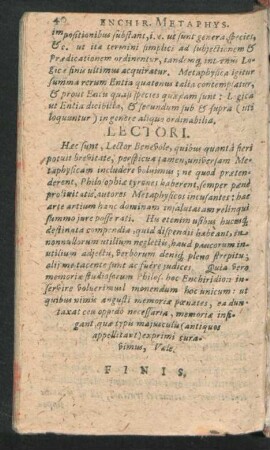 42 ENCHIR. METAPHYS.
impositionibus substant, i. e. ut sunt genera, species,
&c. ut ita termini simplices ad subjectionem &
Prædicationem ordinentur, tandemq; intenni Lo-
gices finis ultimus acquiratur. Metaphysica igitur
summa rerum Entia quatenus talia contemplatur,
& prout Entu quasi species quædam sunt: Logica
ut Entia dicibilia, & secundum sub & supra (uti
loquontur) in genere aliquo ordinabilia,
LECTORI.
Hæc sunt, Lector Benevole, quibus quantâ fieri
potuit brevitate, perspicuâ tamen, universam Me-
taphysicam includere voluimus; ne quod præten-
derent, Philosophiæ tyrones haberent, semper
prolixitatis, autores Metaphysicos incusantes: hac
arte artium hanc dominam insalutatam relinqui
summo jure posse rati. Hu etenim usibus hucusq;
destinata compendia, quid dispendii habeant, in
nonnullorum utilium neglectu, haud paucorum in-
utilium adjectu, verborum deniq; pleno strepitu;
alii me tacente sunt ac fuere judices. Quia vero
memoriæ studiosorum Philos. hoc Enchiridion in-
servire voluerimus monendum hoc unicum: ut
quibus nimis angusti memoriæ penates, ea dun-
taxat ceu oppidò necessaria, memoriæ infi-
gant, quæ typu majusculu (antiquos
appellitant) exprimi cura-
vimus, Vale.
FINIS.